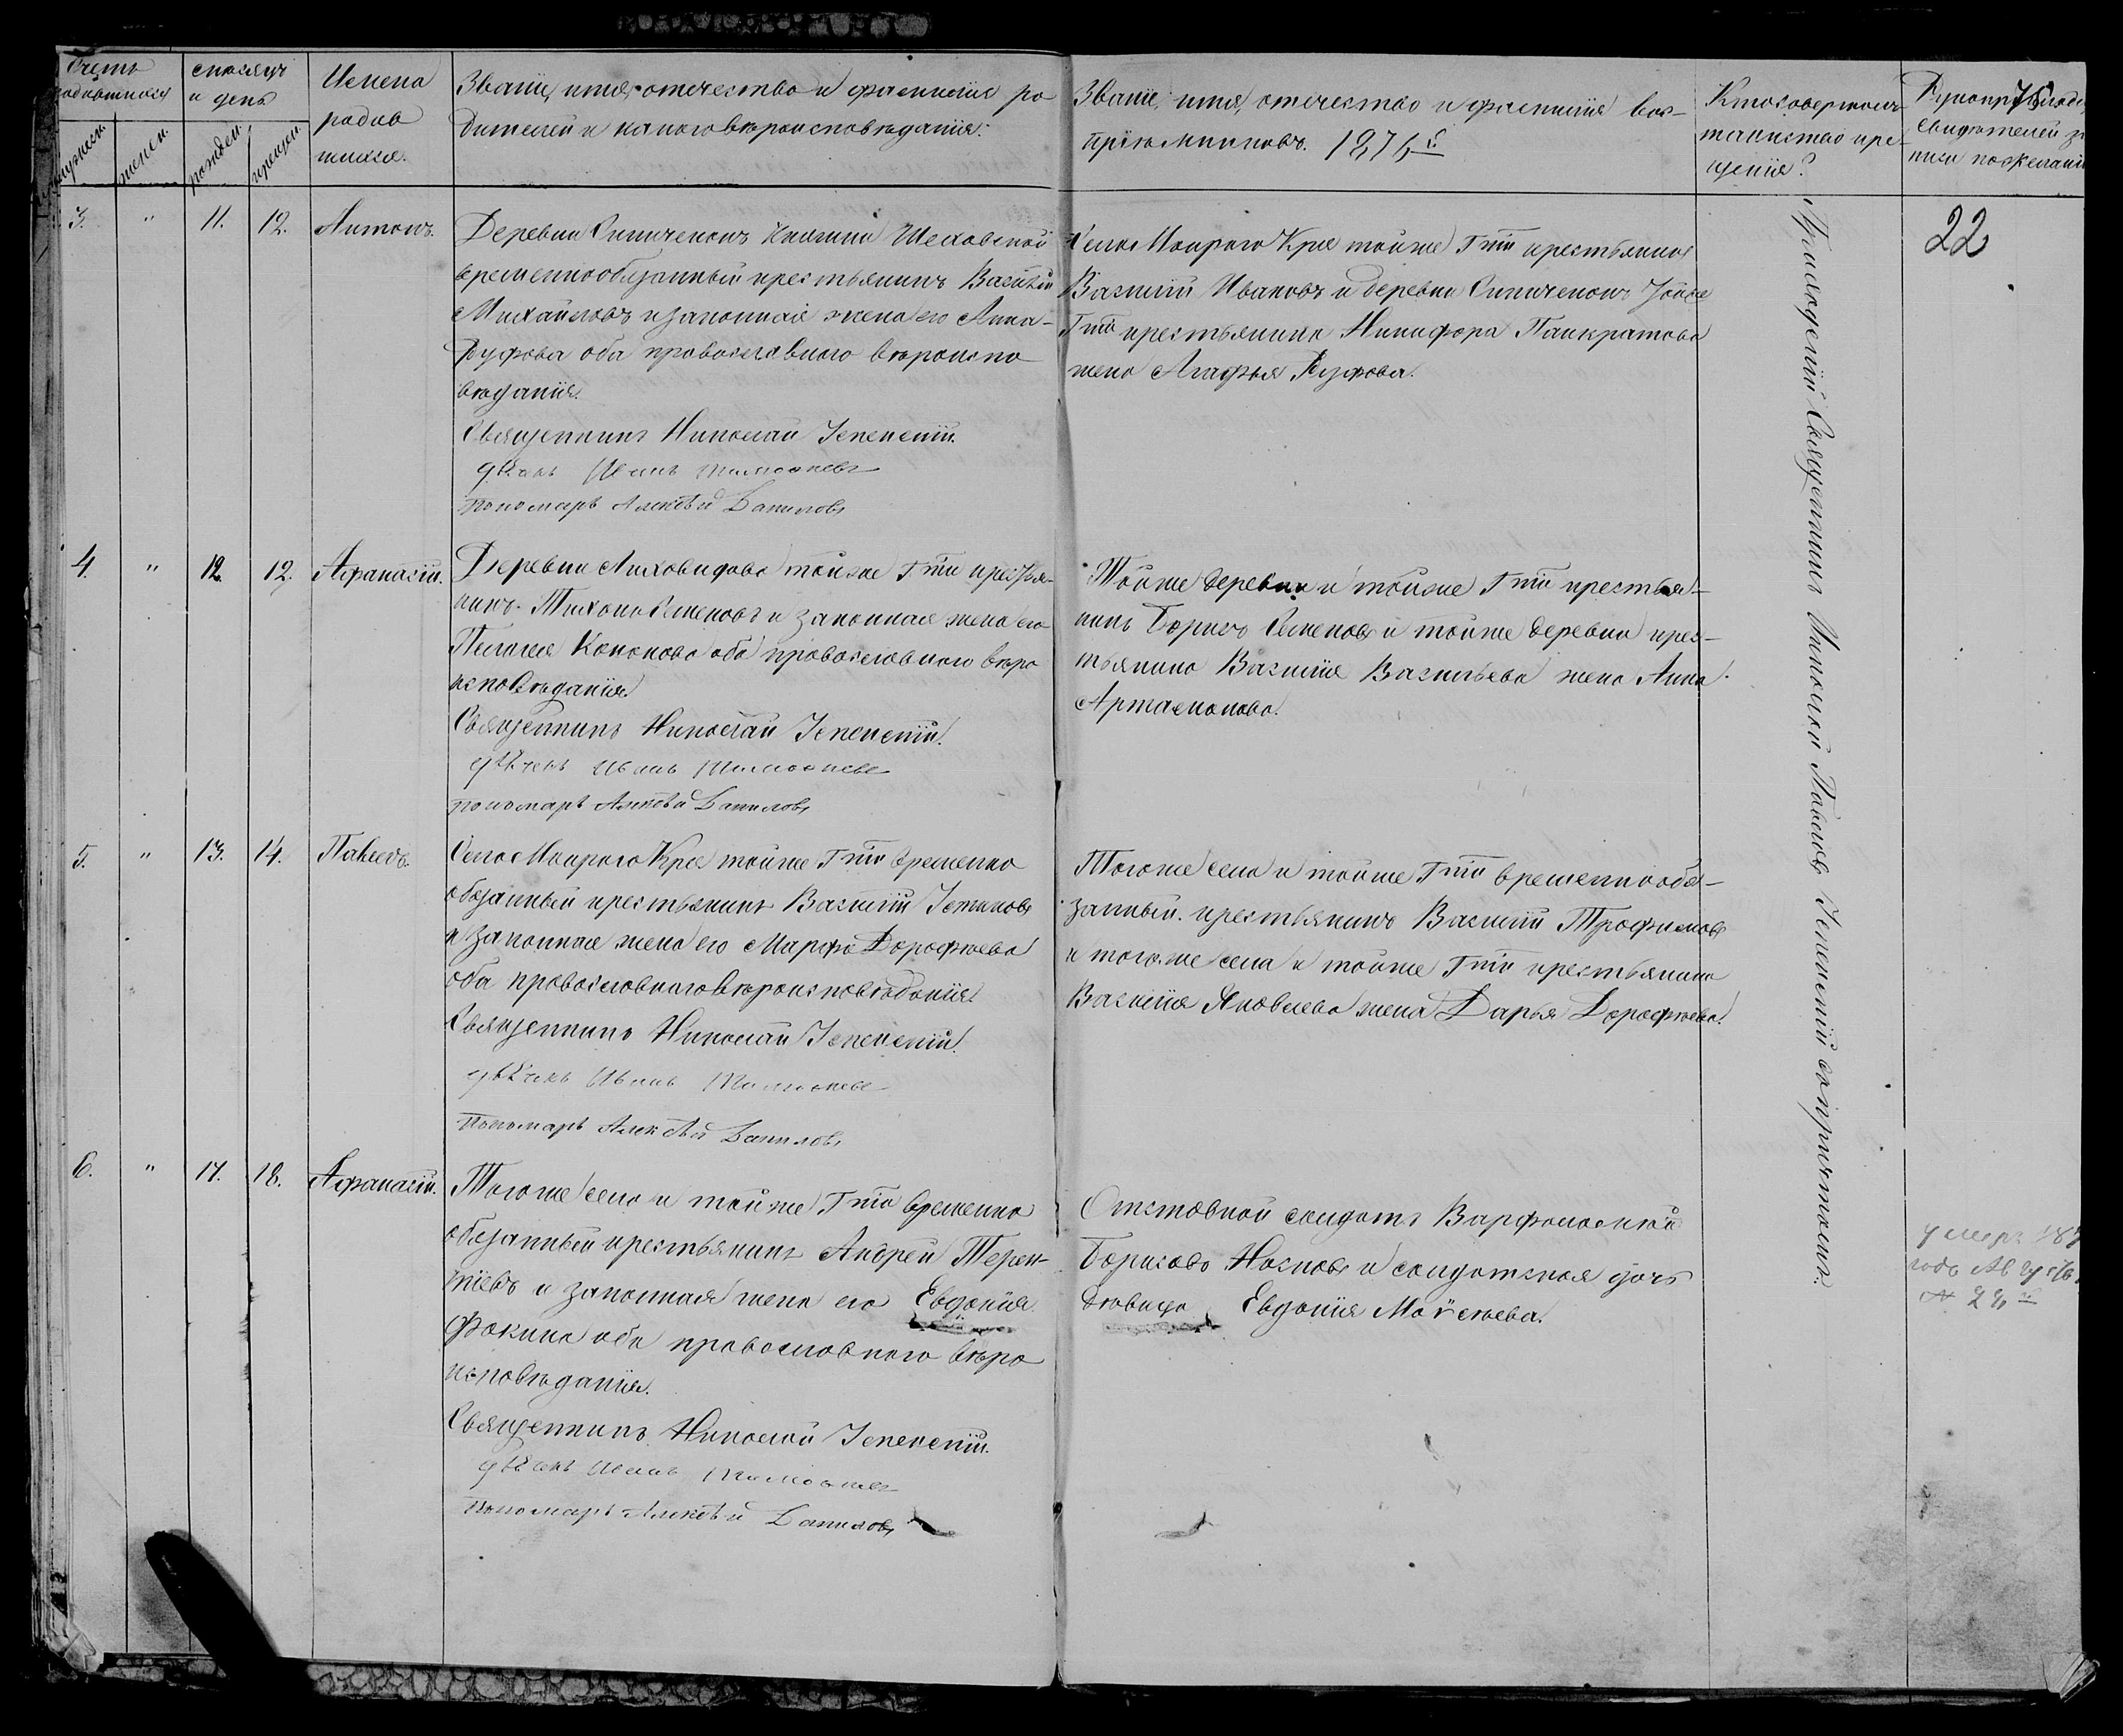 Счетъ родившихся
мужеск.
женск.
Месяцъ и день
рожден.
крещен.
Имена родив
шихся.
Званіе, имя, отчество и фамилія ро
дителей и какого вѣроисповѣданія.
Званіе, имя, отчество и фамилія вос-
пріемниковъ. 1876
Кто совершалъ
таинство кре-
щенія?
Рукоприклад
свидѣтелей за
писи по желанію
22
3. " 11. 12. Антонъ.
Деревни Синиченокъ Княгини Шеховской
временнообязанный крестьянинъ Василій
Михайловъ и законная жена его Анна
Руфова оба православнаго вѣроиспо
вѣданія.
Священникъ Николай Успенскій.
дьячекъ Иванъ Тимофеевъ
пономарь Алексѣй Даниловъ
Села Мокраго Кря тойже Гжи крестьянинъ
Василій Ивановъ и деревни Синиченокъ тойже
Гжи крестьянина Никифора Панкратова
жена Агафья Руфова.
4. " 12. 12. Афанасій.
Деревни Лиховидова тойже Гжи крестья-
нинъ Тихонъ Семеновъ и законная жена его
Пелагея Кононова оба православнаго вѣро
исповѣданія.
Священникъ Николай Успенскій.
дьячекъ Иванъ Тимофеевъ
пономарь Алексѣй Даниловъ
Тойже деревни и тойже Гжи крестья-
нинъ Борисъ Семеновъ и тойже деревни крес-
тьянина Василія Васильева жена Анна
Артамонова.
5. " 13. 14. Павелъ.
Села Мокраго Кря тойже Гжи временно
обязанный крестьянинъ Василій Устиновъ
и законная жена его Марфа Дорофѣева
оба православнаго вѣроисповѣданія.
Священникъ Николай Успенскій.
дьячекъ Иванъ Тимофеевъ
пономарь Алексѣй Даниловъ
Тогоже села и тойже Гжи временнообя-
занный крестьянинъ Василій Трофимовъ
и тогоже села и тойже Гжи крестьянина
Василія Яковлева жена Дарья Дорофѣева.
6. " 17. 18. Афанасій.
Тогоже села и тойже Гжи временно
обязанный крестьянинъ Андрей Терен-
тіевъ и законная жена его Евдокія
Фокина оба православнаго вѣро
исповѣданія.
Священникъ Николай Успенскій.
дьячекъ Иванъ Тимофеевъ
пономарь Алексѣй Даниловъ
Отставной солдатъ Варфоломей
Борисовъ Носковъ и солдатская дочь
дѣвица Евдокія Моисеева.
Приходскій Священникъ Николай Павловъ Успенскій съ причтомъ.